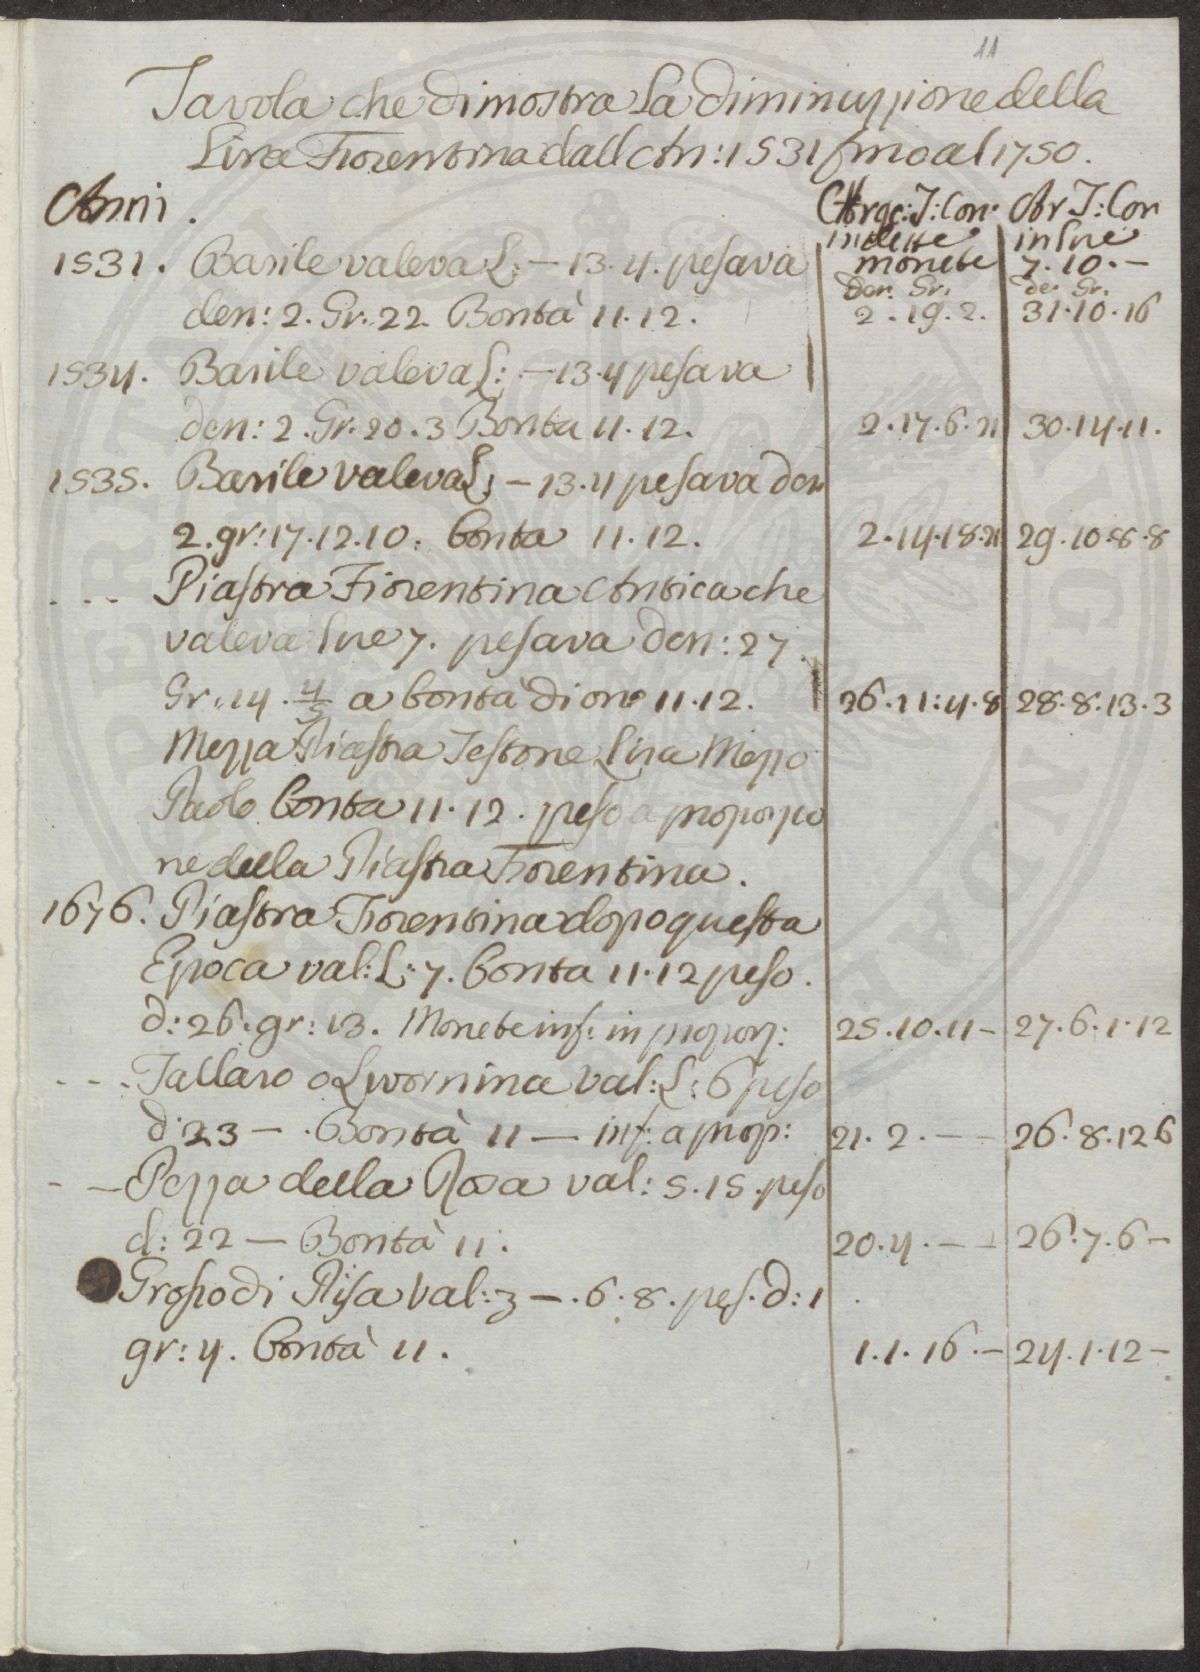 11
Tavola che dimostra La diminuzzione della
Lira Fiorentina dall An: 1531 fino al 1750.
Anni . Arge: J: Con: Ar J: Con
in dette in lire
1531. Barile valeva L: – 13.4. pesava monete 7.10.–
den: Gr. de: Gr.
den: 2. Gr. 22. Bontà 11.12. 2.19.2. 31.10.16
1534. Barile valeva L: – 13.4 pesava
den: 2. Gr. 20.3 Bonta 11.12. 2.17.6.21 30.14.11.
1535. Barile valeva L: – 13.4 pesava den
2. gr: 17.12.10. bonta 11.12. 2.14.18.21 29.10.8.8
- - - Piastra Fiorentina Antica che
valeva lire 7. pesava den: 27.
Gr: 14. 4/5 a bontà di one 11.12. 26.11:4.8 28.8.13.3
Mezza Piastra Testone Lira Mezzo
Paolo bonta 11.12. peso a proporzio
ne della Piastra Fiorentina.
1676. Piastra Fiorentina dopo questa
Epoca val: L: 7. bonta 11.12 peso.
d: 26. gr: 13. Monete inf: in proporz: 25.10.11– 27.6.1.12
- - - Tallaro o Livornina val: L: 6 peso
d: 23 – . Bontà 11 — inf: a prop: 21.2.– – 26.8.12 6
- — Pezza della Rosa val: 5.15. peso
d: 22 — Bontà 11. 20.4.– – 26.7.6–
Grosso di Pisa val: 3 –. 6.8. pes. d: 1
gr: 4. bontà 11. 1.1.16.– 24.1.12–